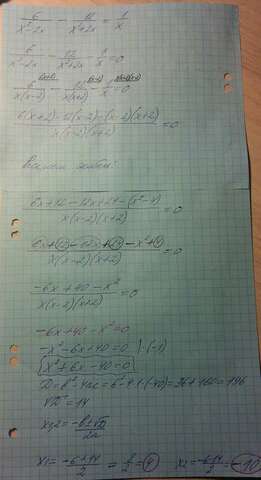 6/(x²-2x) - 12/(x²+2x) = 1/x
6/(x²-2x) - 12/(x²+2x) - 1/x = 0
6/(x(x-2)) - 12/(x(x+2)) - 1/x = 0
(6(x+2)-12(x-2)-(x-2)(x+2))/(x(x-2)(x+2)) = 0
(6x+12-12x+24-(x²-4))/(x(x-2)(x+2)) = 0
(6x+12-12x+24-x²+4)/(x(x-2)(x+2)) = 0
(-6x+40-x²)/(x(x-2)(x+2)) = 0
-6x+40-x²=0
-x²-6x+40=0 |·(-1)
x²+6x-40=0
D=b²-4ac=6²-4·1·(-40)=36+160=196
√D=14
x1,2 = (-b±√D)/2a
x1 = (-6+14)/2 = 8/2 = 4 x2 = (-6-14)/2 = -10